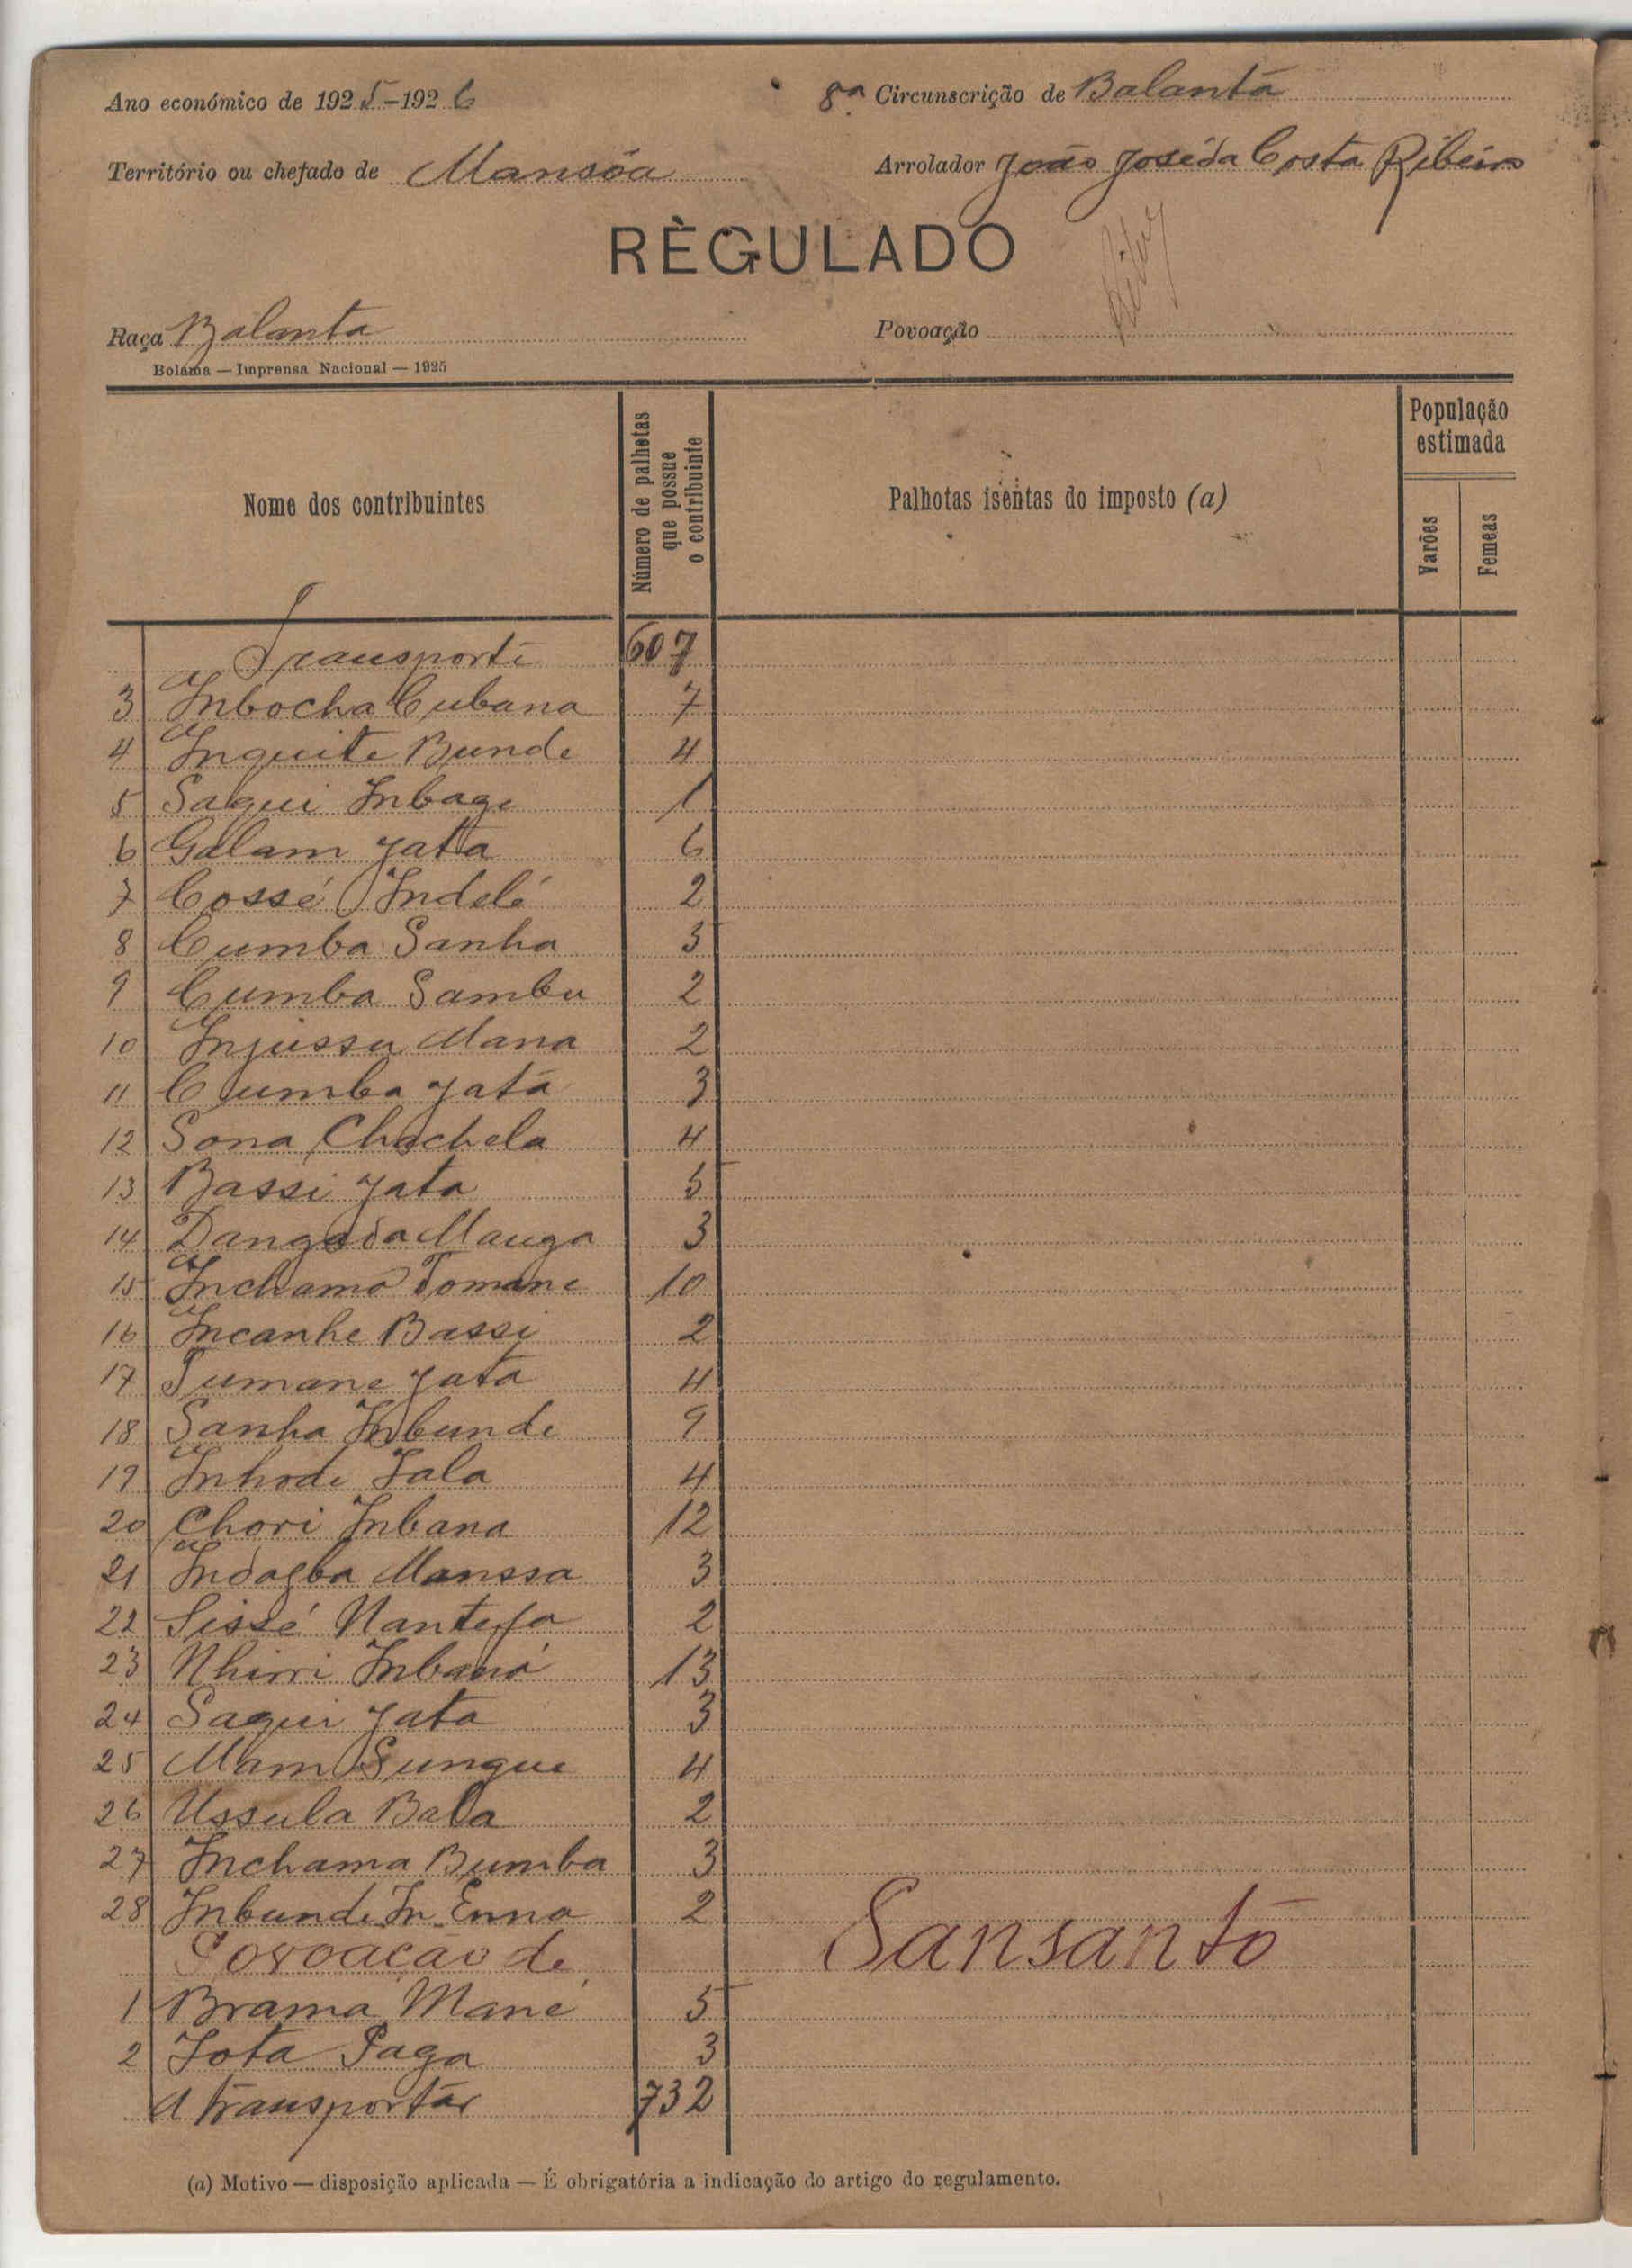 Ano económico de 1925-1926
8ª Circunscrição de Balanta
Território ou chefado de Mansôa
Arrolador João José da Costa Ribeiro
RÈGULADO
Raça Balanta
Povoação
Bolama — Imprensa Nacional — 1925
Nome dos contribuintes
Número de palhotas que possue o contribuinte
Palhotas isentas do imposto (a)
População estimada
Varões
Femeas
Transporte 607
3 Inbocha Cubana 7
4 Inquite Bunde 4
5 Saqui Inbage 1
6 Galam Yata 6
7 Cossé Indelé 2
8 Cumba Sanha 5
9 Cumba Sambu 2
10 Injussu Mana 2
11 Cumba Yatá 3
12 Sona Chachela 4
13 Bassi Yata 5
14 Dangada Manga 3
15 Inchama Tomane 10
16 Incanhe Bassi 2
17 Tumane Yata 4
18 Sanha Inbunde 9
19 Inhode Fala 4
20 Chori Inbana 12
21 Indagba Manssa 3
22 Sissé Nantefa 2
23 Nhirri Inbaná 13
24 Saqui Yata 3
25 Mam Sungue 4
26 Ussula Bala 2
27 Inchama Bumba 3
28 Inbunde In Enna 2
Povoação de Sansanto
1 Brama Mané 5
2 Jota Paga 3
A transportar 732
(a) Motivo — disposição aplicada — É obrigatória a indicação do artigo do regulamento.